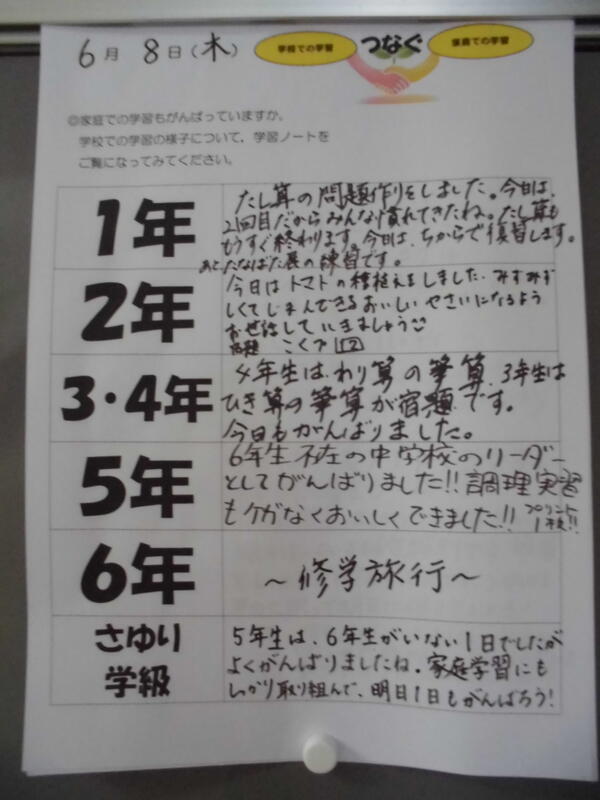 6月 8日(木)
学校での学習 つなぐ 家庭での学習
◎家庭での学習もがんばっていますか。
学校での学習の様子について、学習ノートを
ご覧になってみてください。
1年
たし算の問題作りをしました。今日は、
2回目だからみんな慣れてきたね。たし算も
もうすぐ終わります。今日は、ちからで復習します。
あと、たなばた展の練習です。
2年
今日はトマトの種植えをしました。みずみず
しくて おいしい やさいになるよう
お世話していきましょう
宿題 こくプ
3・4年
4年生は、わり算の筆算、3年生は
ひき算の筆算が宿題です。
今日もがんばりました。
5年
6年生不在の中学校のリーダー
としてがんばりました!!調理実習
もケガなくおいしくできました!! プリント
1枚!!
6年
～修学旅行～
さゆり
学級
5年生は、6年生がいない1日でしたが
よくがんばりましたね。家庭学習にも
しっかり取り組んで、明日1日もがんばろう!